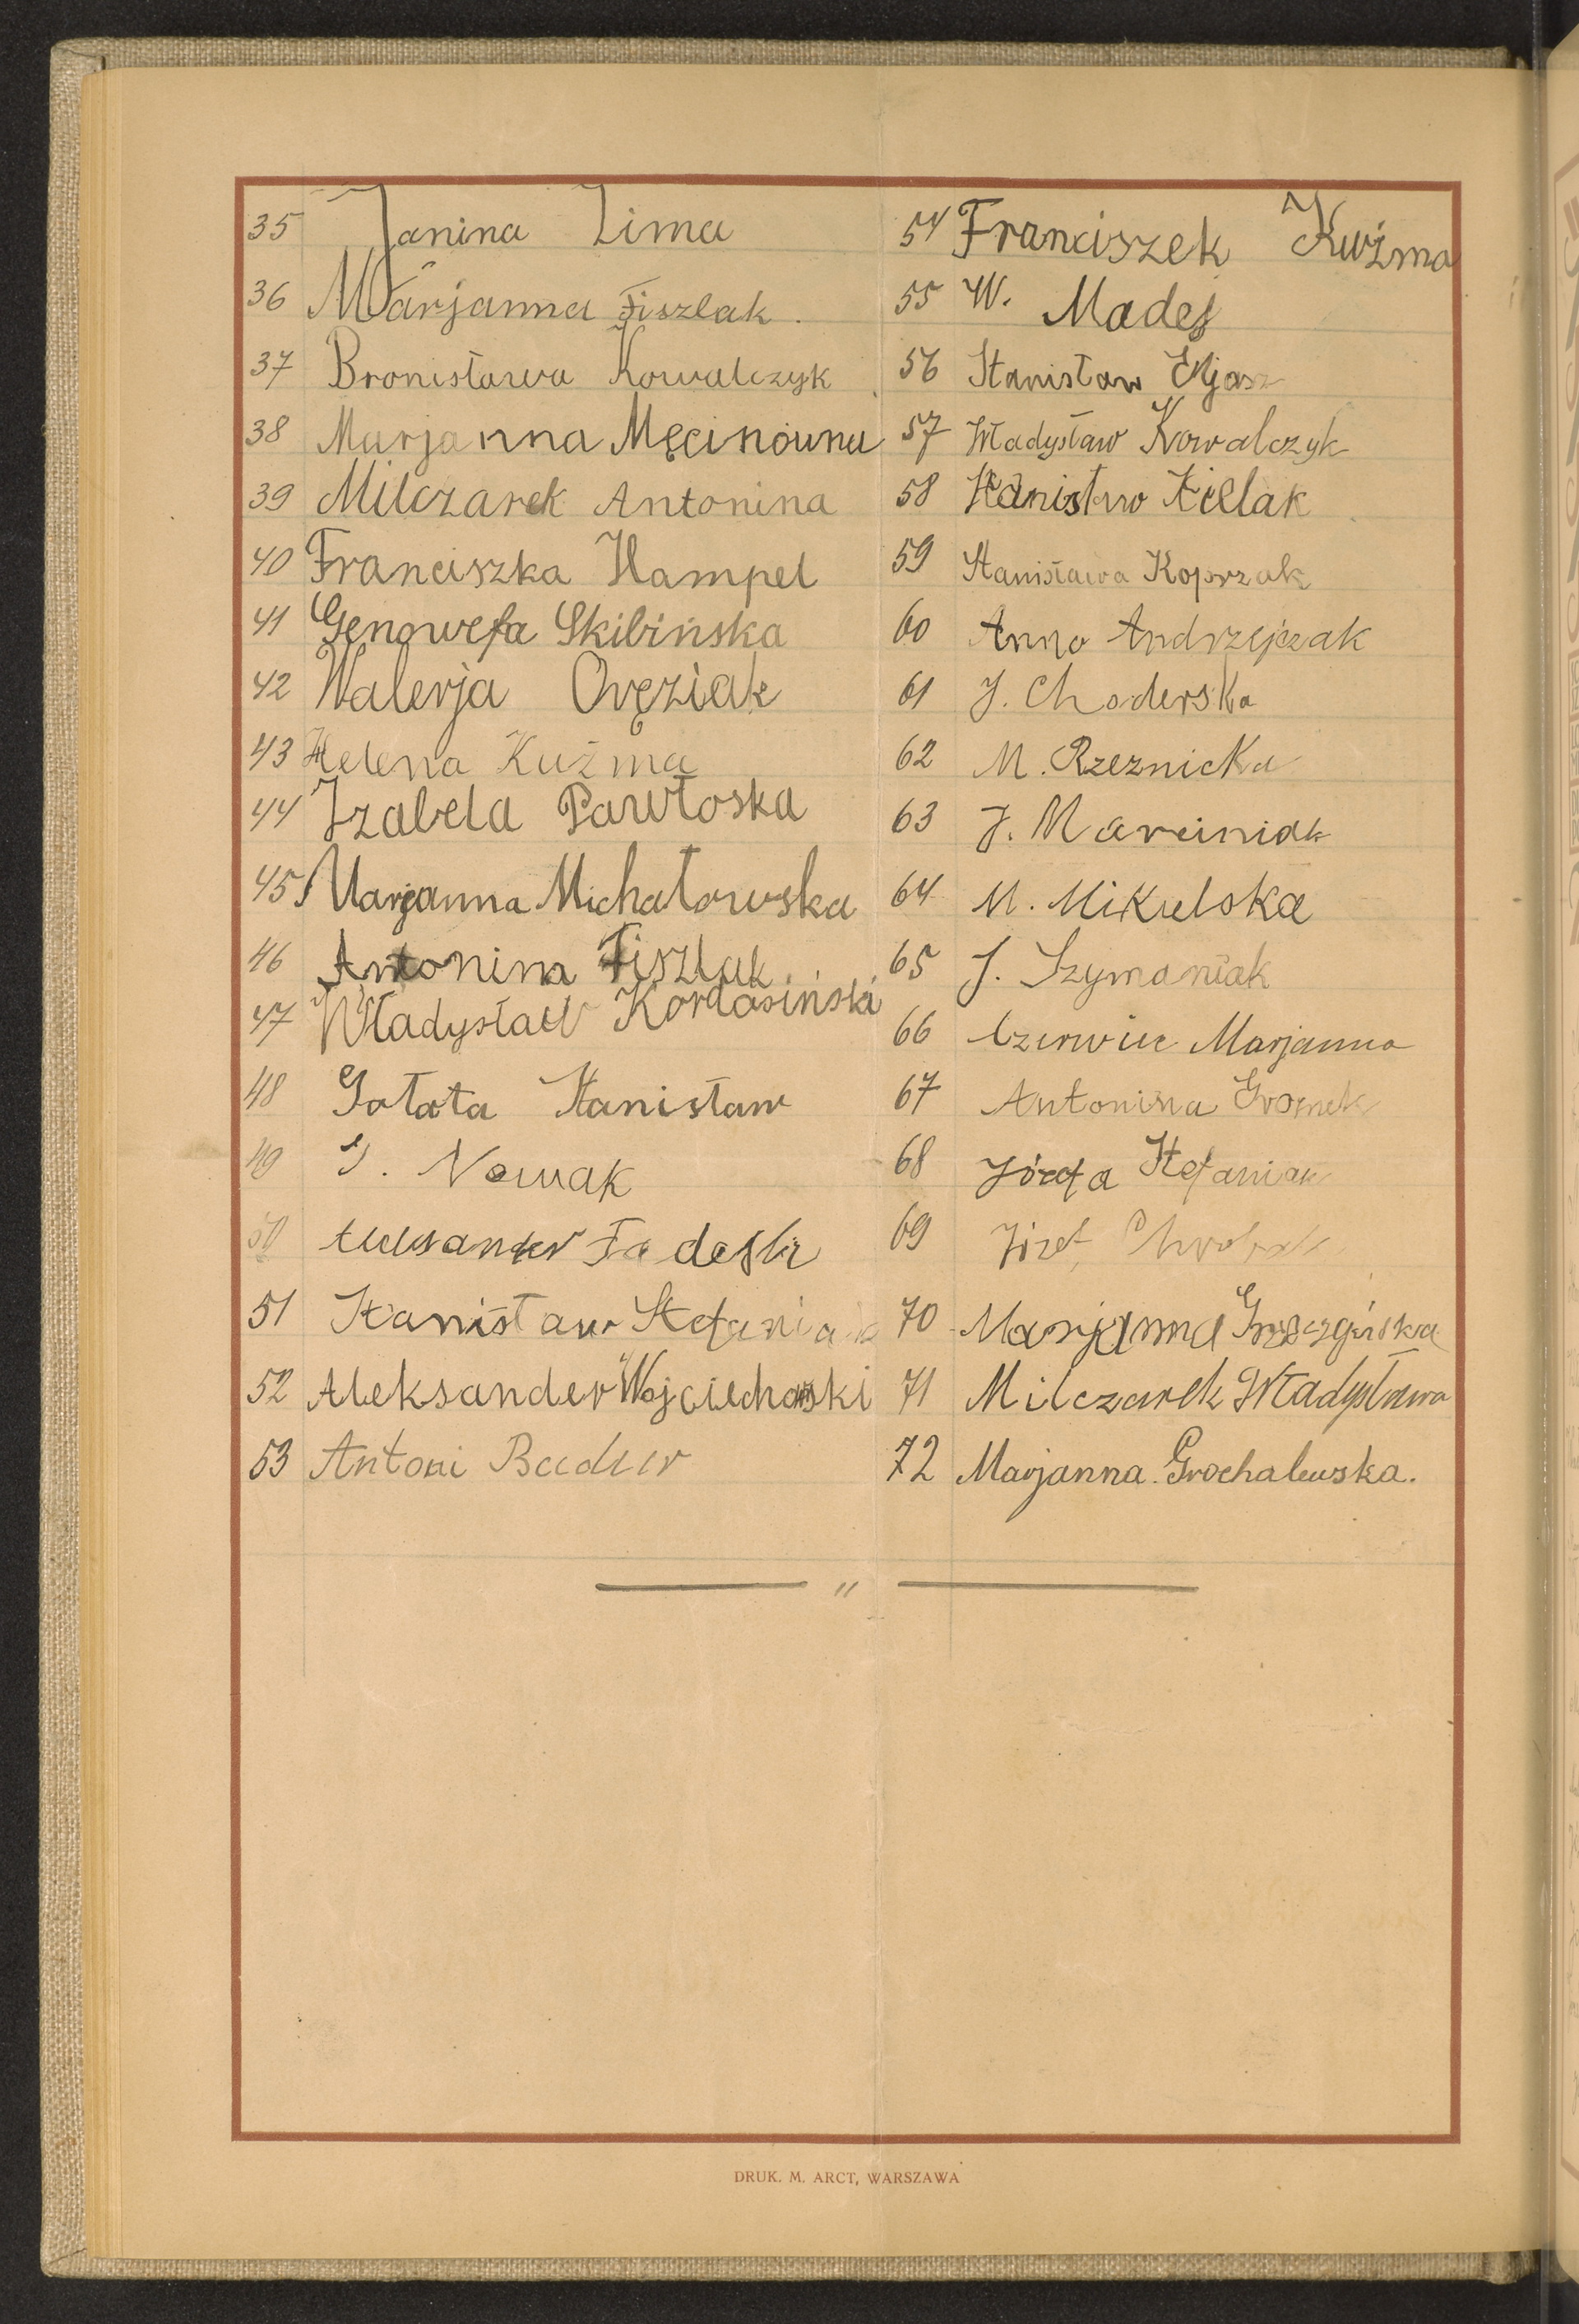 35 Janina Zima
36 Marjanna Fiszlak.
37 Bronisława Kowalczyk
38 Marjanna Męcinówna
39 Milczarek Antonina
40 Franciszka Hampel
41 Genowefa Skibińska
42 Walerja Oręziak
43 Helena Kuźma
44 Izabela Pawłoska
45 Marjanna Michałowska
46 Antonina Fiszlak
47 Władysław Kordasiński
48 Gołata Stanisław
49 G. Nowak
50 Aleksander
51 Stanisław Stefaniak
52 Aleksander Wojciechowski
53 Antoni Badur
54 Franciszek Kuźma
55 W. Madej
56 Stanisław Eljasz
57 Władysław Kowalczyk
58 Kiellak
59 Stanisława Koprzak
60 Anna Andrzejczak
61 J. Choderska
62 M. Rzeznicka
63 J. Marciniak
64 M. Mikulska
65 J. Szymaniak
66 Czerwiec Marjanna
67 Antonina
68 Józefa Stefaniak
69 Józef
70 Marjanna
71 Milczarek Władysława
72 Marjanna Grochalewska.
DRUK. M. ARCT, WARSZAWA